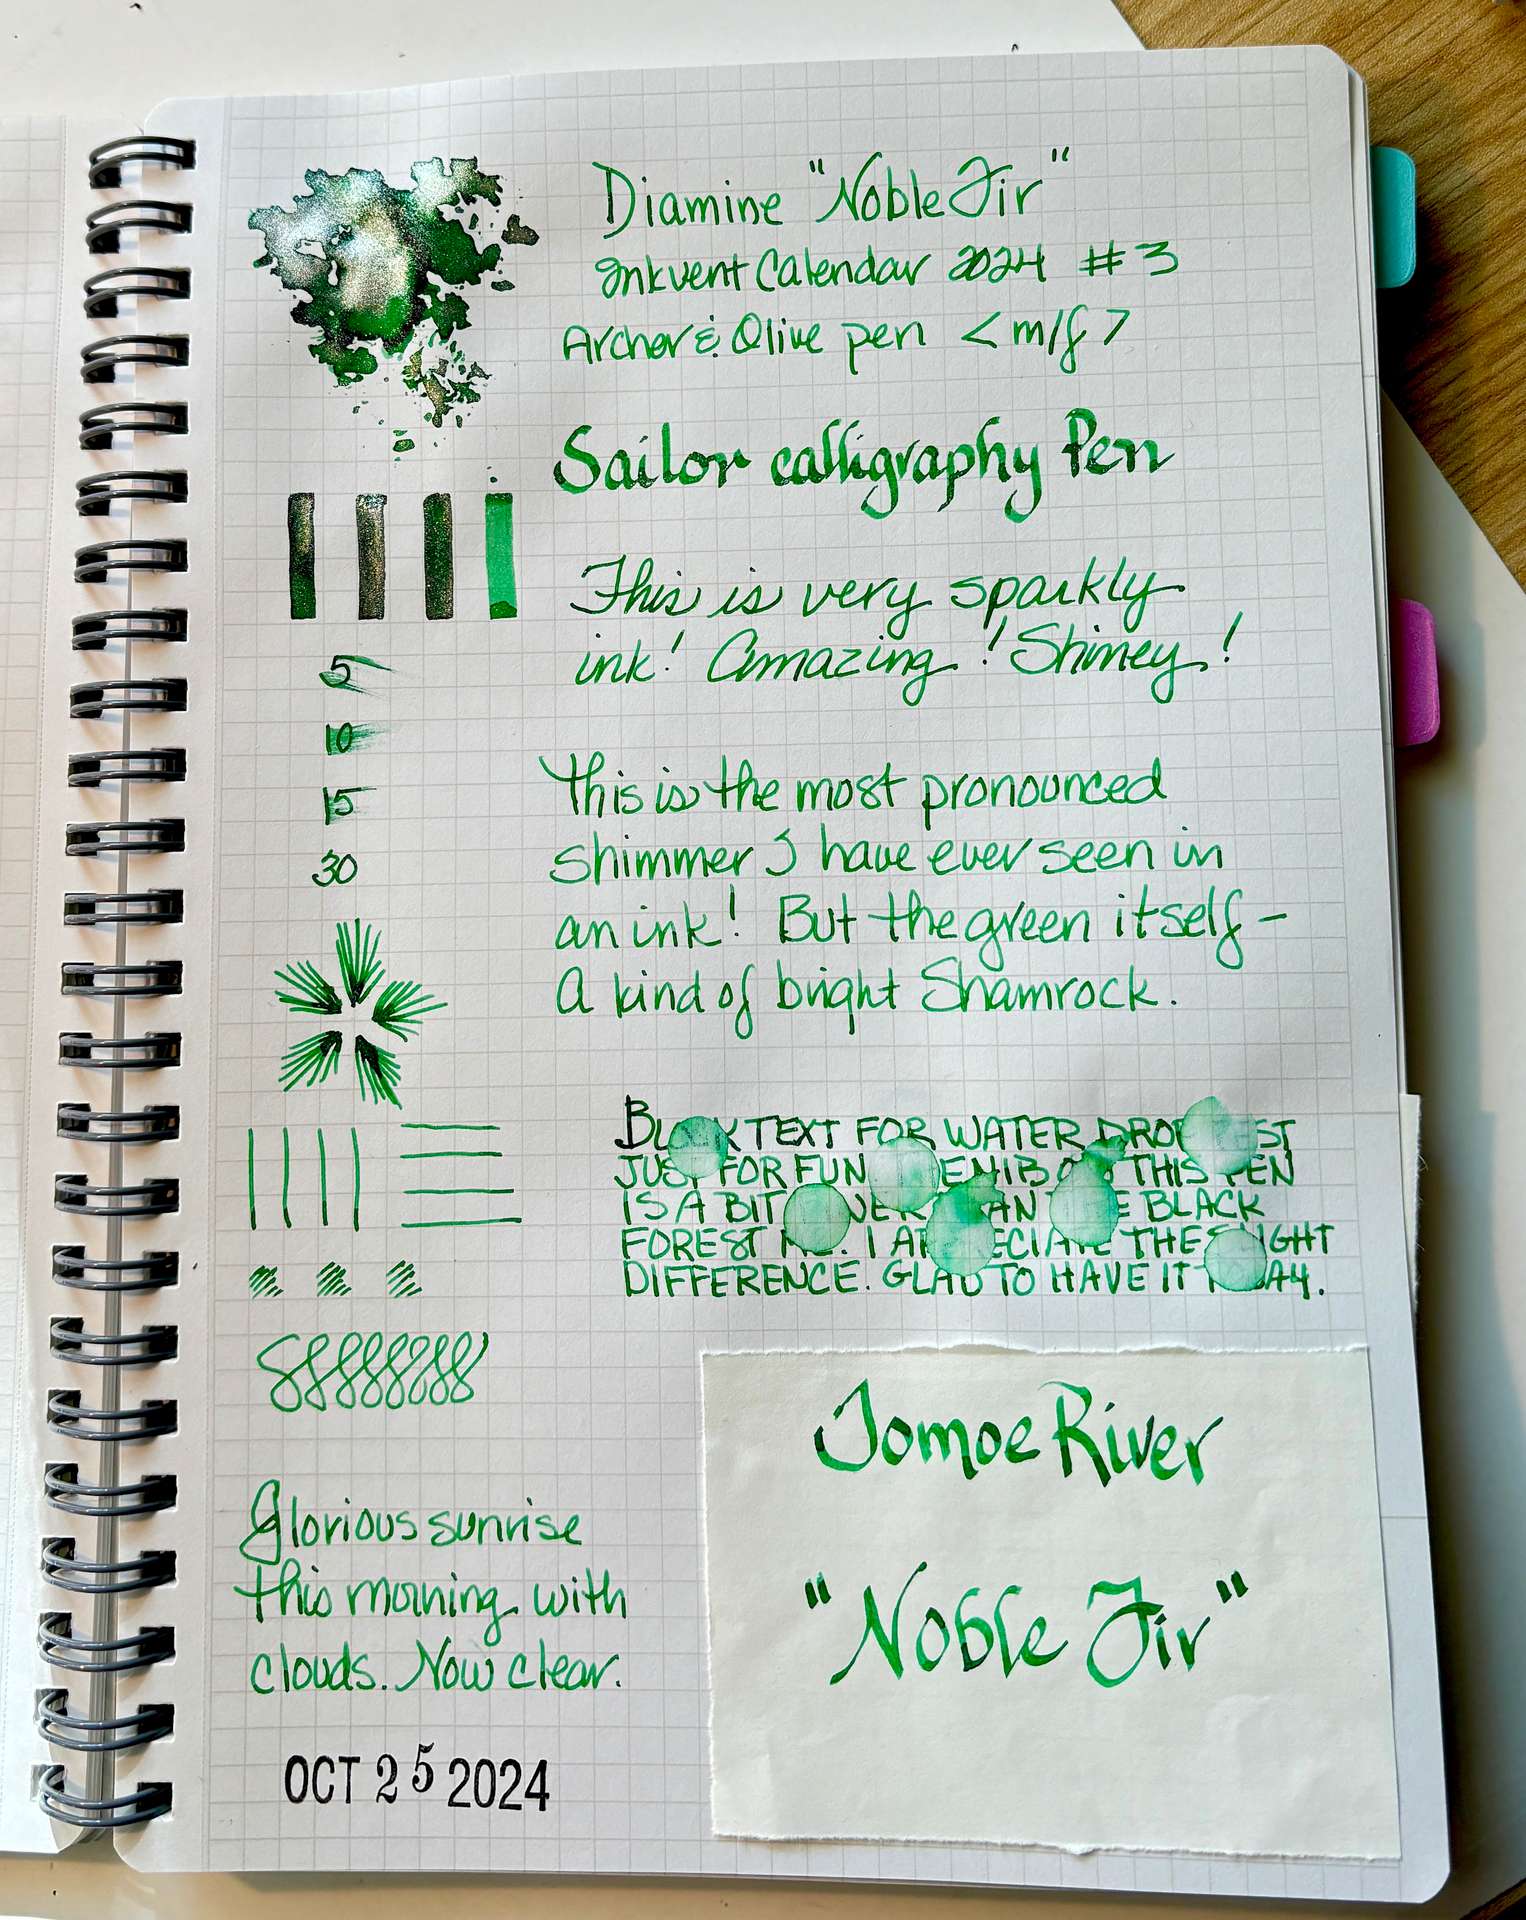 Diamine "Noble Fir"
Inkvent Calendar 2024 #3
Archer & Olive pen <m/f>
Sailor calligraphy Pen
This is very sparkly
ink! Amazing! Shiney!
5
10
15
30
This is the most pronounced
shimmer I have ever seen in
an ink! But the green itself -
A kind of bright Shamrock.
BLOCK TEXT FOR WATER DROP TEST
JUST FOR FUN. THE NIB ON THIS PEN
IS A BIT THAN THE BLACK
FOREST I APPRECIATE THE SLIGHT
DIFFERENCE. GLAD TO HAVE IT TODAY.
Glorious sunrise
this morning with
clouds. Now clear.
OCT 25 2024
Tomoe River
"Noble Fir"